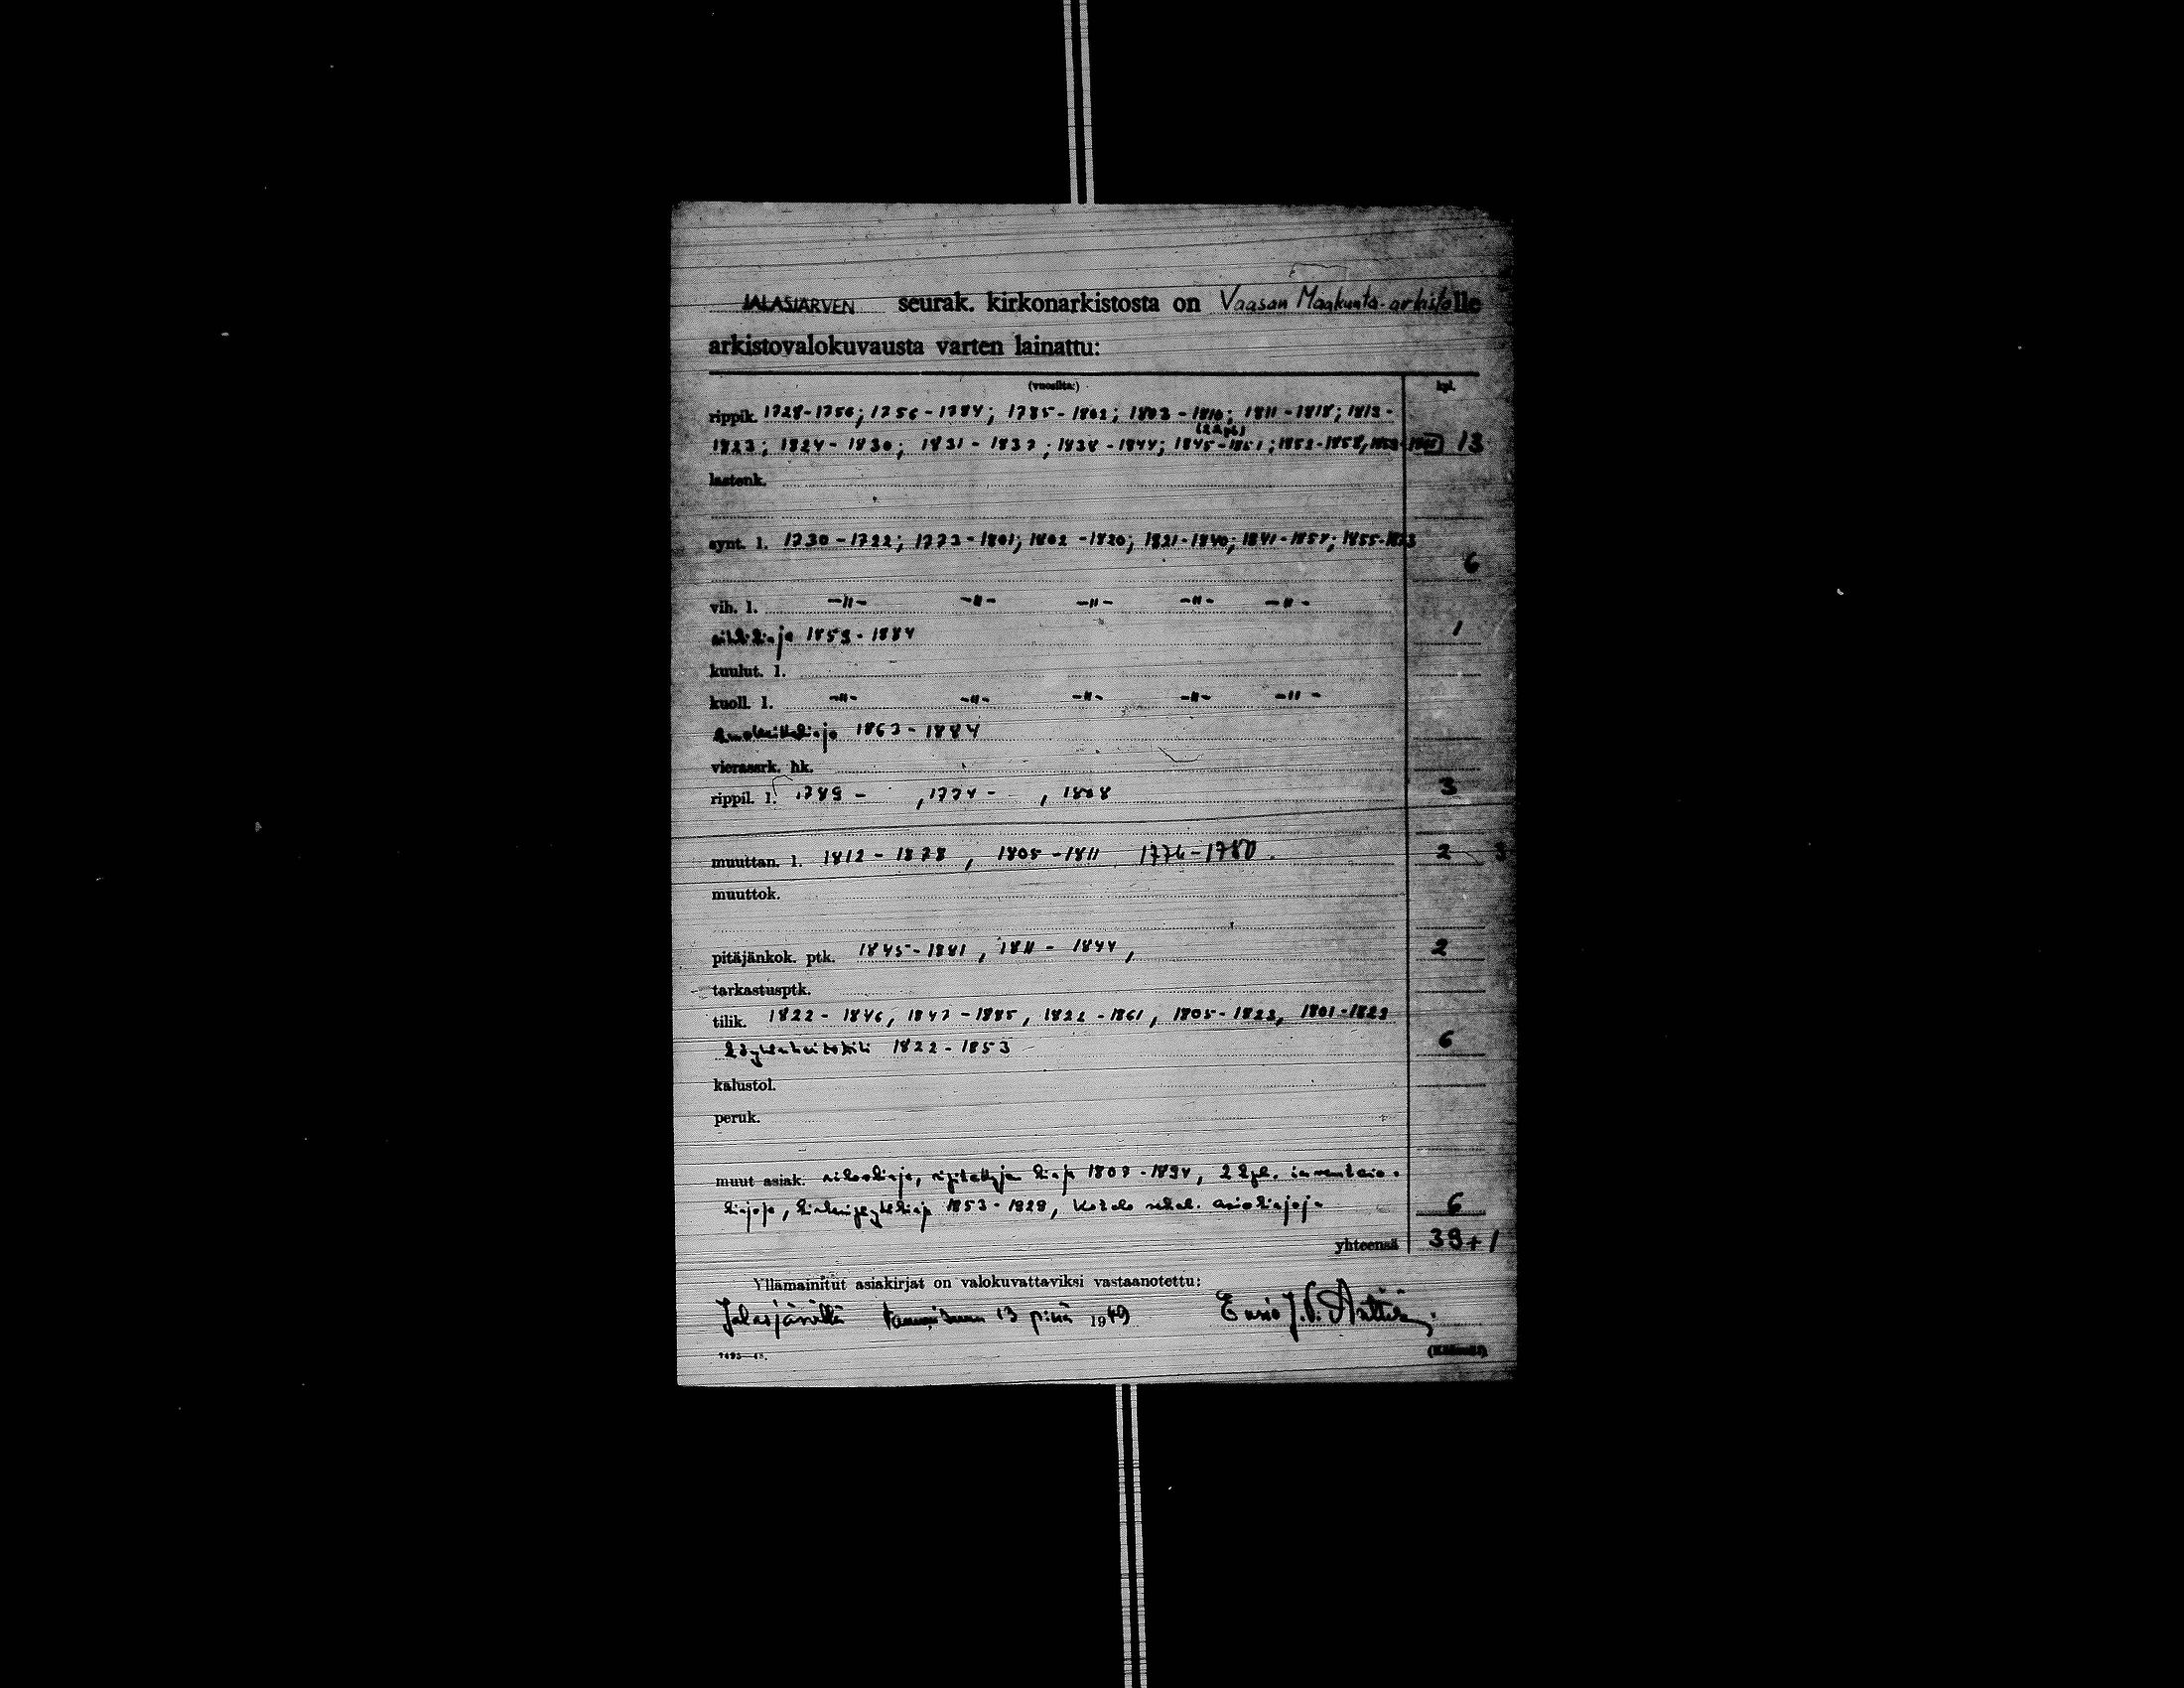 JALASJÄRVEN seurak. kirkonarkistosta on Vaasan Maakunta-arkistolle
arkistovalokuvausta varten lainattu:
(vuosilta:) kpl.
rippik. 1728-1756; 1756-1784; 1785-1802; 1803-1810; 1811-1818; 1818-
(2 kpl)
1823; 1824-1830; 1831-1837; 1838-1844; 1845-1851; 1852-1858, 13
lastenk.
synt. l. 1730-1722; 1773-1801; 1802-1820; 1821-1840; 1841-1854; 1855-
6
vih. l. -"- -"- -"- -"- -"-
1884 1
kuulut. l.
kuoll. l. -"- -"- -"- -"- -"-
1863-1884
vierassrk. hk.
rippil. l. 1789 - , 1774 - , 1808 3
muuttan. l. 1812-1878, 1805-1811 1776-1780. 2 3
muuttok.
pitäjänkok. ptk. 1845-1881, 1811-1844, 2
tarkastusptk.
tilik. 1822-1846, 1847-1885, 1822-1861, 1805-1822, 1801-1823
1822-1853 6
kalustol.
peruk.
muut asiak. rikoskirja, ripitettyjen kirja 2 kpl. inventaario-
kirjoja, 1853-1928, asiakirjoja 6
yhteensä 39+1
Yllämainitut asiakirjat on valokuvattaviksi vastaanotettu:
Jalasjärvellä tammikuun 13 p:nä 1949